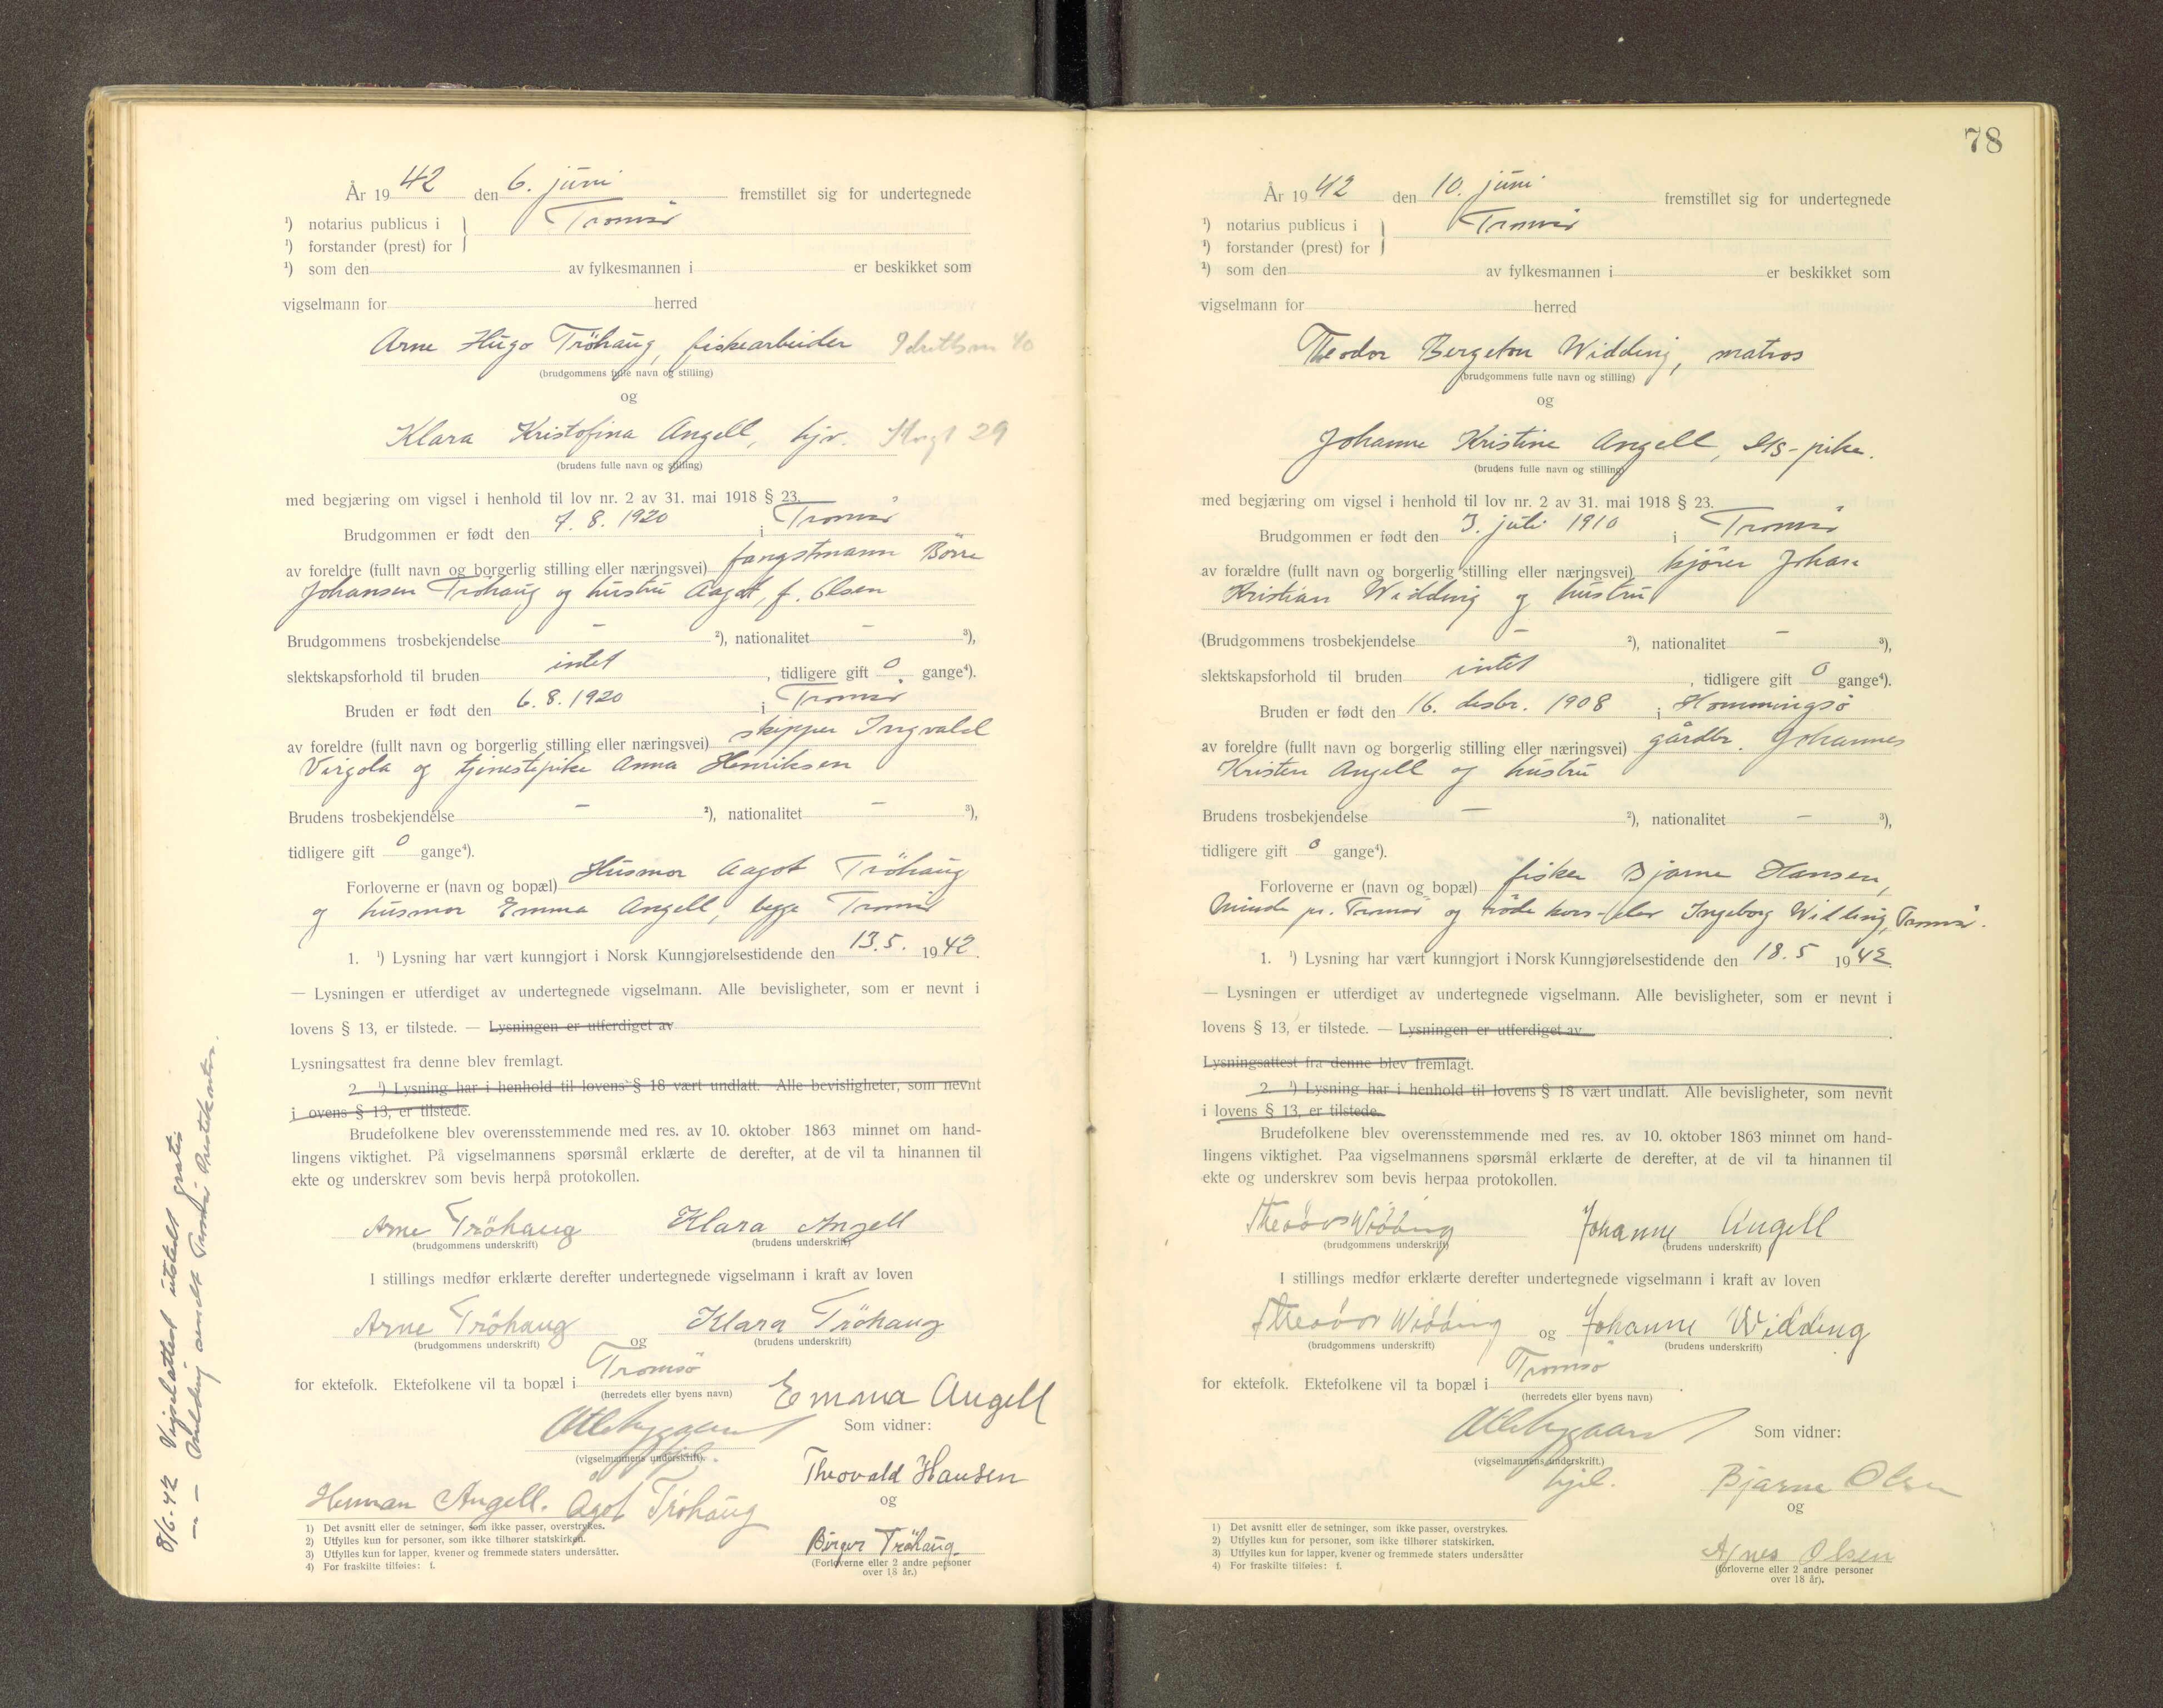 År 1942 den 6. juni fremstillet sig for undertegnede
¹) notarius publicus i } Tromsø
¹) forstander (prest) for
¹) som den av fylkesmannen i er beskikket som
vigselmann for herred
Arne Hugo Tröhaug, fiskearbeider
(brudgommens fulle navn og stilling)
og
Klara Kristofina Angell, hjv. 29
(brudens fulle navn og stilling)
med begjæring om vigsel i henhold til lov nr. 2 av 31. mai 1918 § 23.
Brudgommen er født den 7. 8. 1920 i Tromsø
av foreldre (fullt navn og borgerlig stilling eller næringsvei) fangstmann Börre
Johansen Tröhaug og hustru Aagot, f. Olsen
Brudgommens trosbekjendelse – ²), nationalitet – ³),
slektskapsforhold til bruden intet, tidligere gift 0 gange⁴).
Bruden er født den 6. 8. 1920 i Tromsø
av foreldre (fullt navn og borgerlig stilling eller næringsvei) skipper Ingvald
Virgola og tjenestepike Anna Henriksen
Brudens trosbekjendelse – ²), nationalitet – ³),
tidligere gift 0 gange⁴).
Forloverne er (navn og bopæl) Husmor Aagot Tröhaug
og husmor Emma Angell, begge Tromsø
1. ¹) Lysning har vært kunngjort i Norsk Kunngjørelsestidende den 13.5. 1942.
— Lysningen er utferdiget av undertegnede vigselmann. Alle bevisligheter, som er nevnt i
lovens § 13, er tilstede. — Lysningen er utferdiget av
Lysningsattest fra denne blev fremlagt.
2 ¹) Lysning har i henhold til lovens § 18 vært undlatt. Alle bevisligheter, som nevnt
i ovens § 13, er tilstede.
Brudefolkene blev overensstemmende med res. av 10. oktober 1863 minnet om hand-
lingens viktighet. På vigselmannens spørsmål erklærte de derefter, at de vil ta hinannen til
ekte og underskrev som bevis herpå protokollen.
Arne Tröhaug Klara Angell
(brudgommens underskrift) (brudens underskrift)
I stillings medfør erklærte derefter undertegnede vigselmann i kraft av loven
Arne Tröhaug og Klara Tröhaug
(brudgommens underskrift) (brudens underskrift)
for ektefolk. Ektefolkene vil ta bopæl i Tromsö
(herredets eller byens navn)
Emma Angell
Som vidner:
(vigselmannens underskrift).
hjel.
Theovald Hansen
Herman Angell. Ågot Tröhaug
og
Birger Tröhaug
(Forloverne eller 2 andre personer
over 18 år.)
1) Det avsnitt eller de setninger, som ikke passer, overstrykes.
2) Utfylles kun for personer, som ikke tilhører statskirken.
3) Utfylles kun for lapper, kvener og fremmede staters undersåtter.
4) For fraskilte tilføies: f.
8/6-42 Vigselattest utstedt gratis
— — Melding sendt Tromsø Prestekontor.
78
År 1942 den 10. juni fremstillet sig for undertegnede
¹) notarius publicus i } Tromsø
¹) forstander (prest) for
¹) som den av fylkesmannen i er beskikket som
vigselmann for herred
Theodor Bergeton Widding, matros
(brudgommens fulle navn og stilling)
og
Johanne Kristine Angell, -pike.
(brudens fulle navn og stilling)
med begjæring om vigsel i henhold til lov nr. 2 av 31. mai 1918 § 23.
Brudgommen er født den 3. juli 1910 i Tromsø
av forældre (fullt navn og borgerlig stilling eller næringsvei) kjörer Johan
Kristian Widding og hustru
(Brudgommens trosbekjendelse – ²), nationalitet – ³),
slektskapsforhold til bruden intet, tidligere gift 0 gange⁴).
Bruden er født den 16. desbr. 1908 i Hommingsö
av foreldre (fullt navn og borgerlig stilling eller næringsvei) gårdbr. Johannes
Kristen Angell og hustru
Brudens trosbekjendelse – ²), nationalitet – ³),
tidligere gift 0 gange⁴).
Forloverne er (navn og bopæl) fisker Bjarne Hansen,
Minde pr. Tromsø og röde kors-elev Ingeborg Widding, Tromsø.
1. ¹) Lysning har vært kunngjort i Norsk Kunngjørelsestidende den 18.5 1942.
— Lysningen er utferdiget av undertegnede vigselmann. Alle bevisligheter, som er nevnt i
lovens § 13, er tilstede. — Lysningen er utferdiget av
Lysningsattest fra denne blev fremlagt.
2 ¹) Lysning har i henhold til lovens § 18 vært undlatt. Alle bevisligheter, som nevnt
i lovens § 13, er tilstede.
Brudefolkene blev overensstemmende med res. av 10. oktober 1863 minnet om hand-
lingens viktighet. Paa vigselmannens spørsmål erklærte de derefter, at de vil ta hinannen til
ekte og underskrev som bevis herpaa protokollen.
Theodor Widding Johanne Angell
(brudgommens underskrift) (brudens underskrift)
I stillings medfør erklærte derefter undertegnede vigselmann i kraft av loven
Theodor Widding og Johanne Widding
(brudgommens underskrift) (brudens underskrift)
for ektefolk. Ektefolkene vil ta bopæl i Tromsö.
(herredets eller byens navn)
Som vidner:
(vigselmannens underskrift.)
hjel.
Bjarne Olsen
og
Agnes Olsen
(forloverne eller 2 andre personer
over 18 år).
1) Det avsnitt eller de setninger, som ikke passer, overstrykes.
2) Utfylles kun for personer, som ikke tilhører statskirken.
3) Utfylles kun for lapper, kvener og fremmede staters undersåtter
4) For fraskilte tilføies: f.